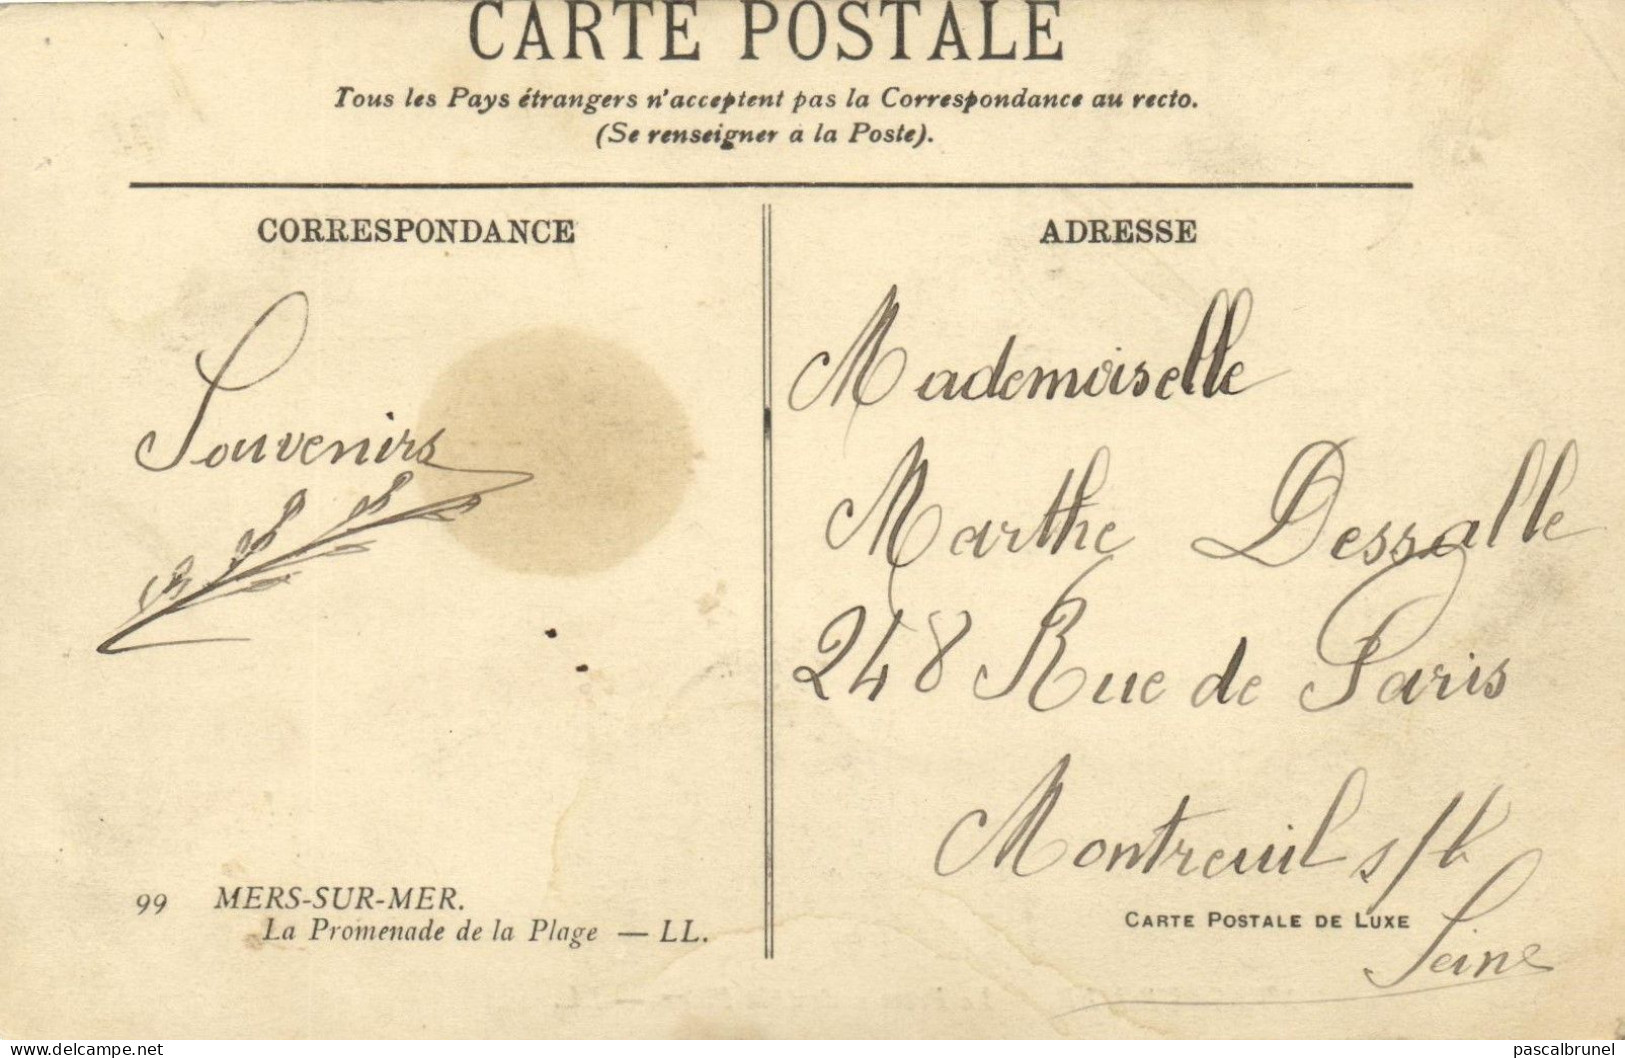 CARTE POSTALE
Tous les Pays étrangers n'acceptent pas la Correspondance au recto.
(Se renseigner a la Poste).
CORRESPONDANCE
Souvenirs
99 MERS-SUR-MER.
La Promenade de la Plage — LL.
ADRESSE
Mademoiselle
Marthe Dessalle
248 Rue de Paris
Montreuil s/b
Seine
CARTE POSTALE DE LUXE
https://www.delcampe.net
pascalbrunel